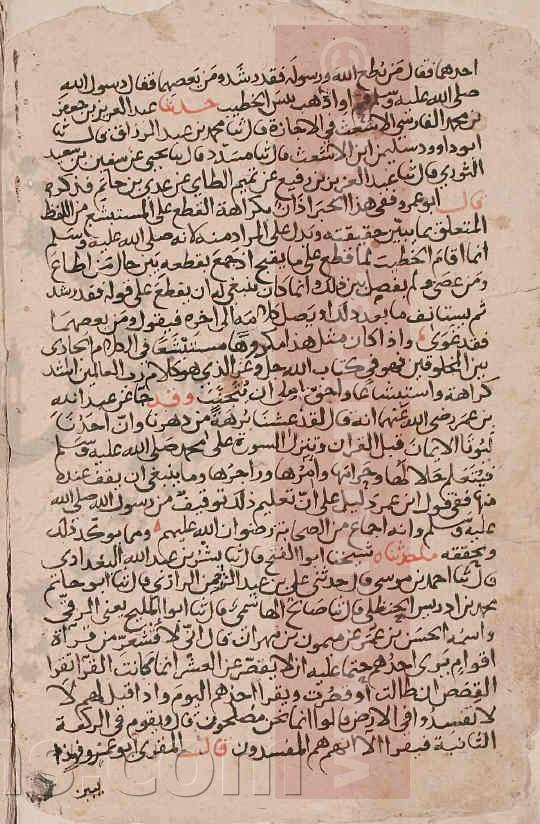 احدهما فقال من يطع الله ورسوله فقد رشد ومن يعصهما فقال رسول الله
صلى الله عليه وسلم او اذهب بئس الخطيب حدثنا عبد العزيز بن جعفر
بن محمد الفارسي في الاجازة قال ثنا محمد بن عبد الرزاق قال ثنا
ابو داود سليمن ابن الاشعث قال ثنا مسدد قال ثنا يحيى عن سفين بن سعيد
الثوري قال ثنا عبد العزيز بن رفيع عن تميم الطاي عن عدي بن حاتم فذكره
قال ابو عمرو ففي هذا الخبر اذان بكراهة القطع على المستبشع من اللفظ
المتعلق بما يبين حقيقته ويدل على المراد منه لانه صلى الله عليه وسلم
انما اقام الخطيب لما قطع على ما يقبح اذ جمع بقطعه بين حال من اطاع
ومن عصى ولم يفصل بين ذلك وانما كان ينبغي له ان يقطع على قوله فقد رشد
ثم يستانف ما بعد ذلك او يصل كلامه الى اخره فيقول ومن يعصهما
فقد غوى واذا كان مثل هذا مكروها مستبشعا في الكلام الجاري
بين المخلوقين فهو في كتاب الله جل وعز الذي هو كلام رب العالمين اشد
كراهة واستبشاعا واحق واولى ان يتجنب وقد جا عن عبد الله
بن عمر رضي الله عنهما انه قال لقد عشنا برهة من دهرنا وان احدنا
ليوتا الايمان قبل القران وتنزل السورة على محمد صلى الله عليه وسلم
فيتعلم حلالها وحرامها وامرها وزاجرها وما ينبغي ان يقف عنده
منها ففي قول ابن عمر دليل على ان تعليم ذلك توقيف من رسول الله صلى الله
عليه وسلم وانه اجماع من الصحابة رضوان الله عليهم ومما يوكد ذلك
ويحققه ما حدثناه شيخنا ابو الفتح قال ثنا بشر بن عبد الله البغدادي
قال ثنا احمد بن موسى قال حدثني علي بن عبد الرحمن الرازي قال ثنا ابو حاتم
محمد بن ادريس الحنظلي قال ثنا صالح الهاشمي قال ثنا ابو المليح يعني الرقي
واسمه الحسن بن عمر عن ميمون بن مهران قال اني لاقشعر من قراة
اقوام يرى احدهم حتما عليه ان لا يقصر عن العشر انما كانت القرا تقرا
القصص ان طالت او قصرت ويقرا احدهم اليوم واذا قيل لهم لا
لا تفسدوا في الارض قالوا انما نحن مصلحون قال ويقوم في الركعة
الثانية فيقرا الا انهم هم المفسدون قال المقري ابو عمرو فهذا
يبين